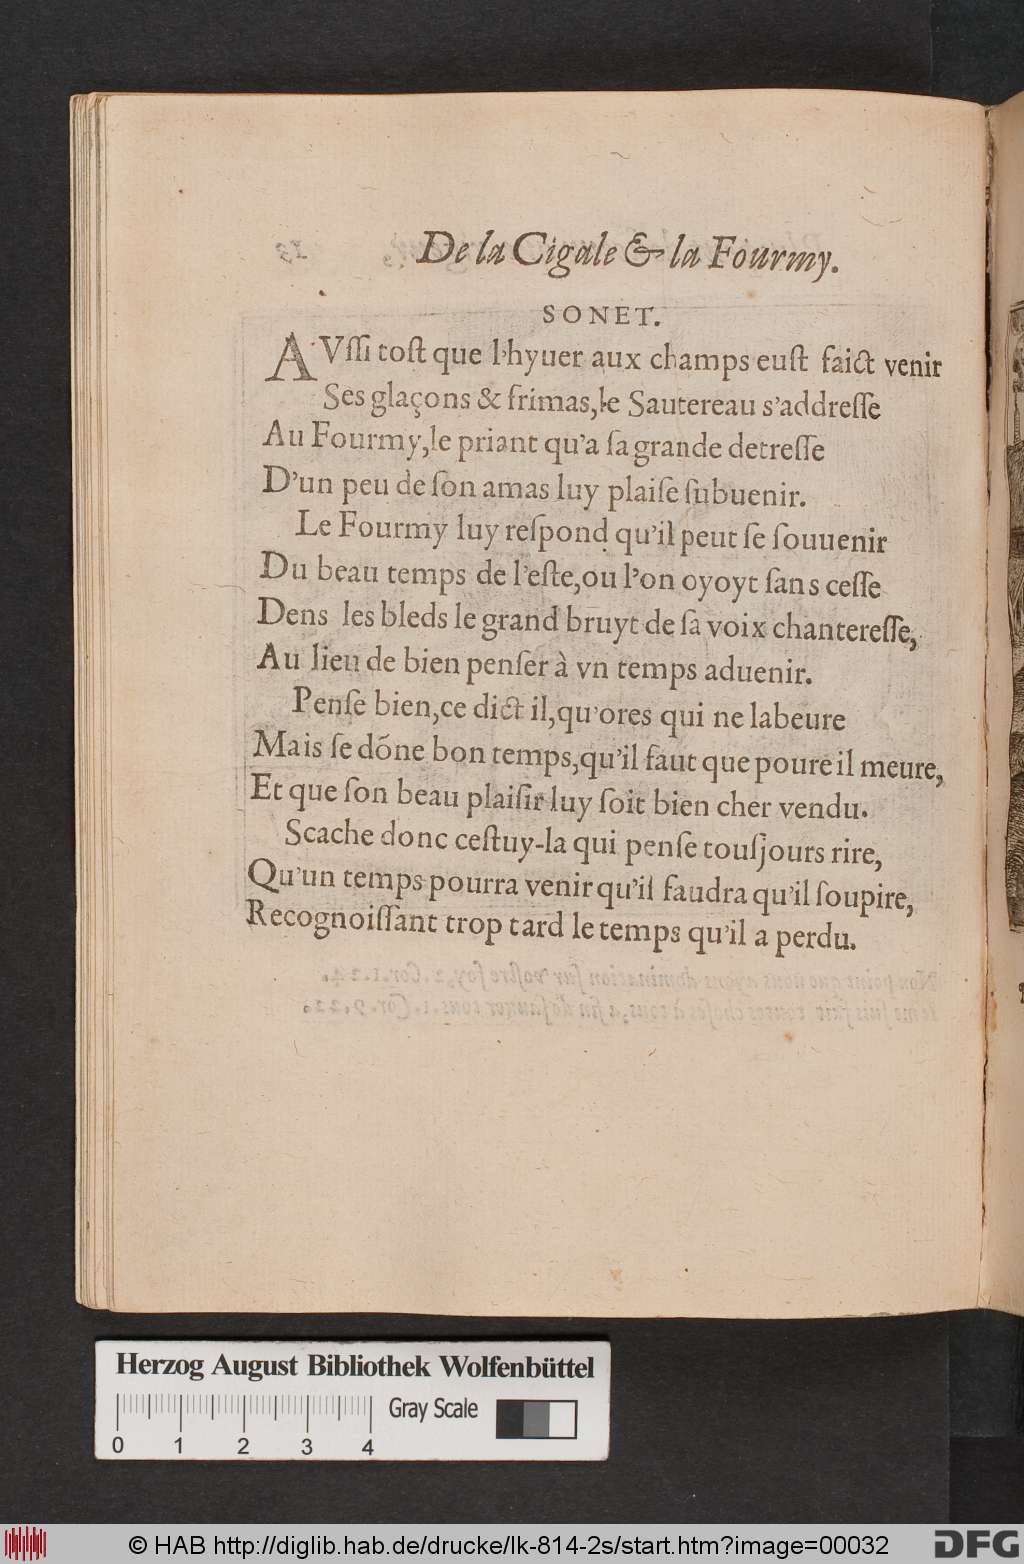 De la Cigale & la Fourmy.
SONET.
AVſſi toſt que l'hyuer aux champs euſt faict venir
Ses glaçons & frimas, le Sautereau s'addreſſe
Au Fourmy, le priant qu'a ſa grande detreſſe
D'un peu de ſon amas luy plaiſe ſubuenir.
Le Fourmy luy reſpond qu'il peut ſe ſouuenir
Du beau temps de l'eſte, ou l'on oyoyt ſans ceſſe
Dens les bleds le grand bruyt de ſa voix chantereſſe,
Au lieu de bien penſer à vn temps aduenir.
Penſe bien, ce dict il, qu'ores qui ne labeure
Mais ſe dõne bon temps, qu'il faut que poure il meure,
Et que ſon beau plaiſir luy ſoit bien cher vendu.
Scache donc ceſtuy-la qui penſe touſjours rire,
Qu'un temps pourra venir qu'il faudra qu'il ſoupire,
Recognoiſſant trop tard le temps qu'il a perdu.
Herzog August Bibliothek Wolfenbüttel
Gray Scale
0 1 2 3 4
© HAB http://diglib.hab.de/drucke/lk-814-2s/start.htm?image=00032
DFG